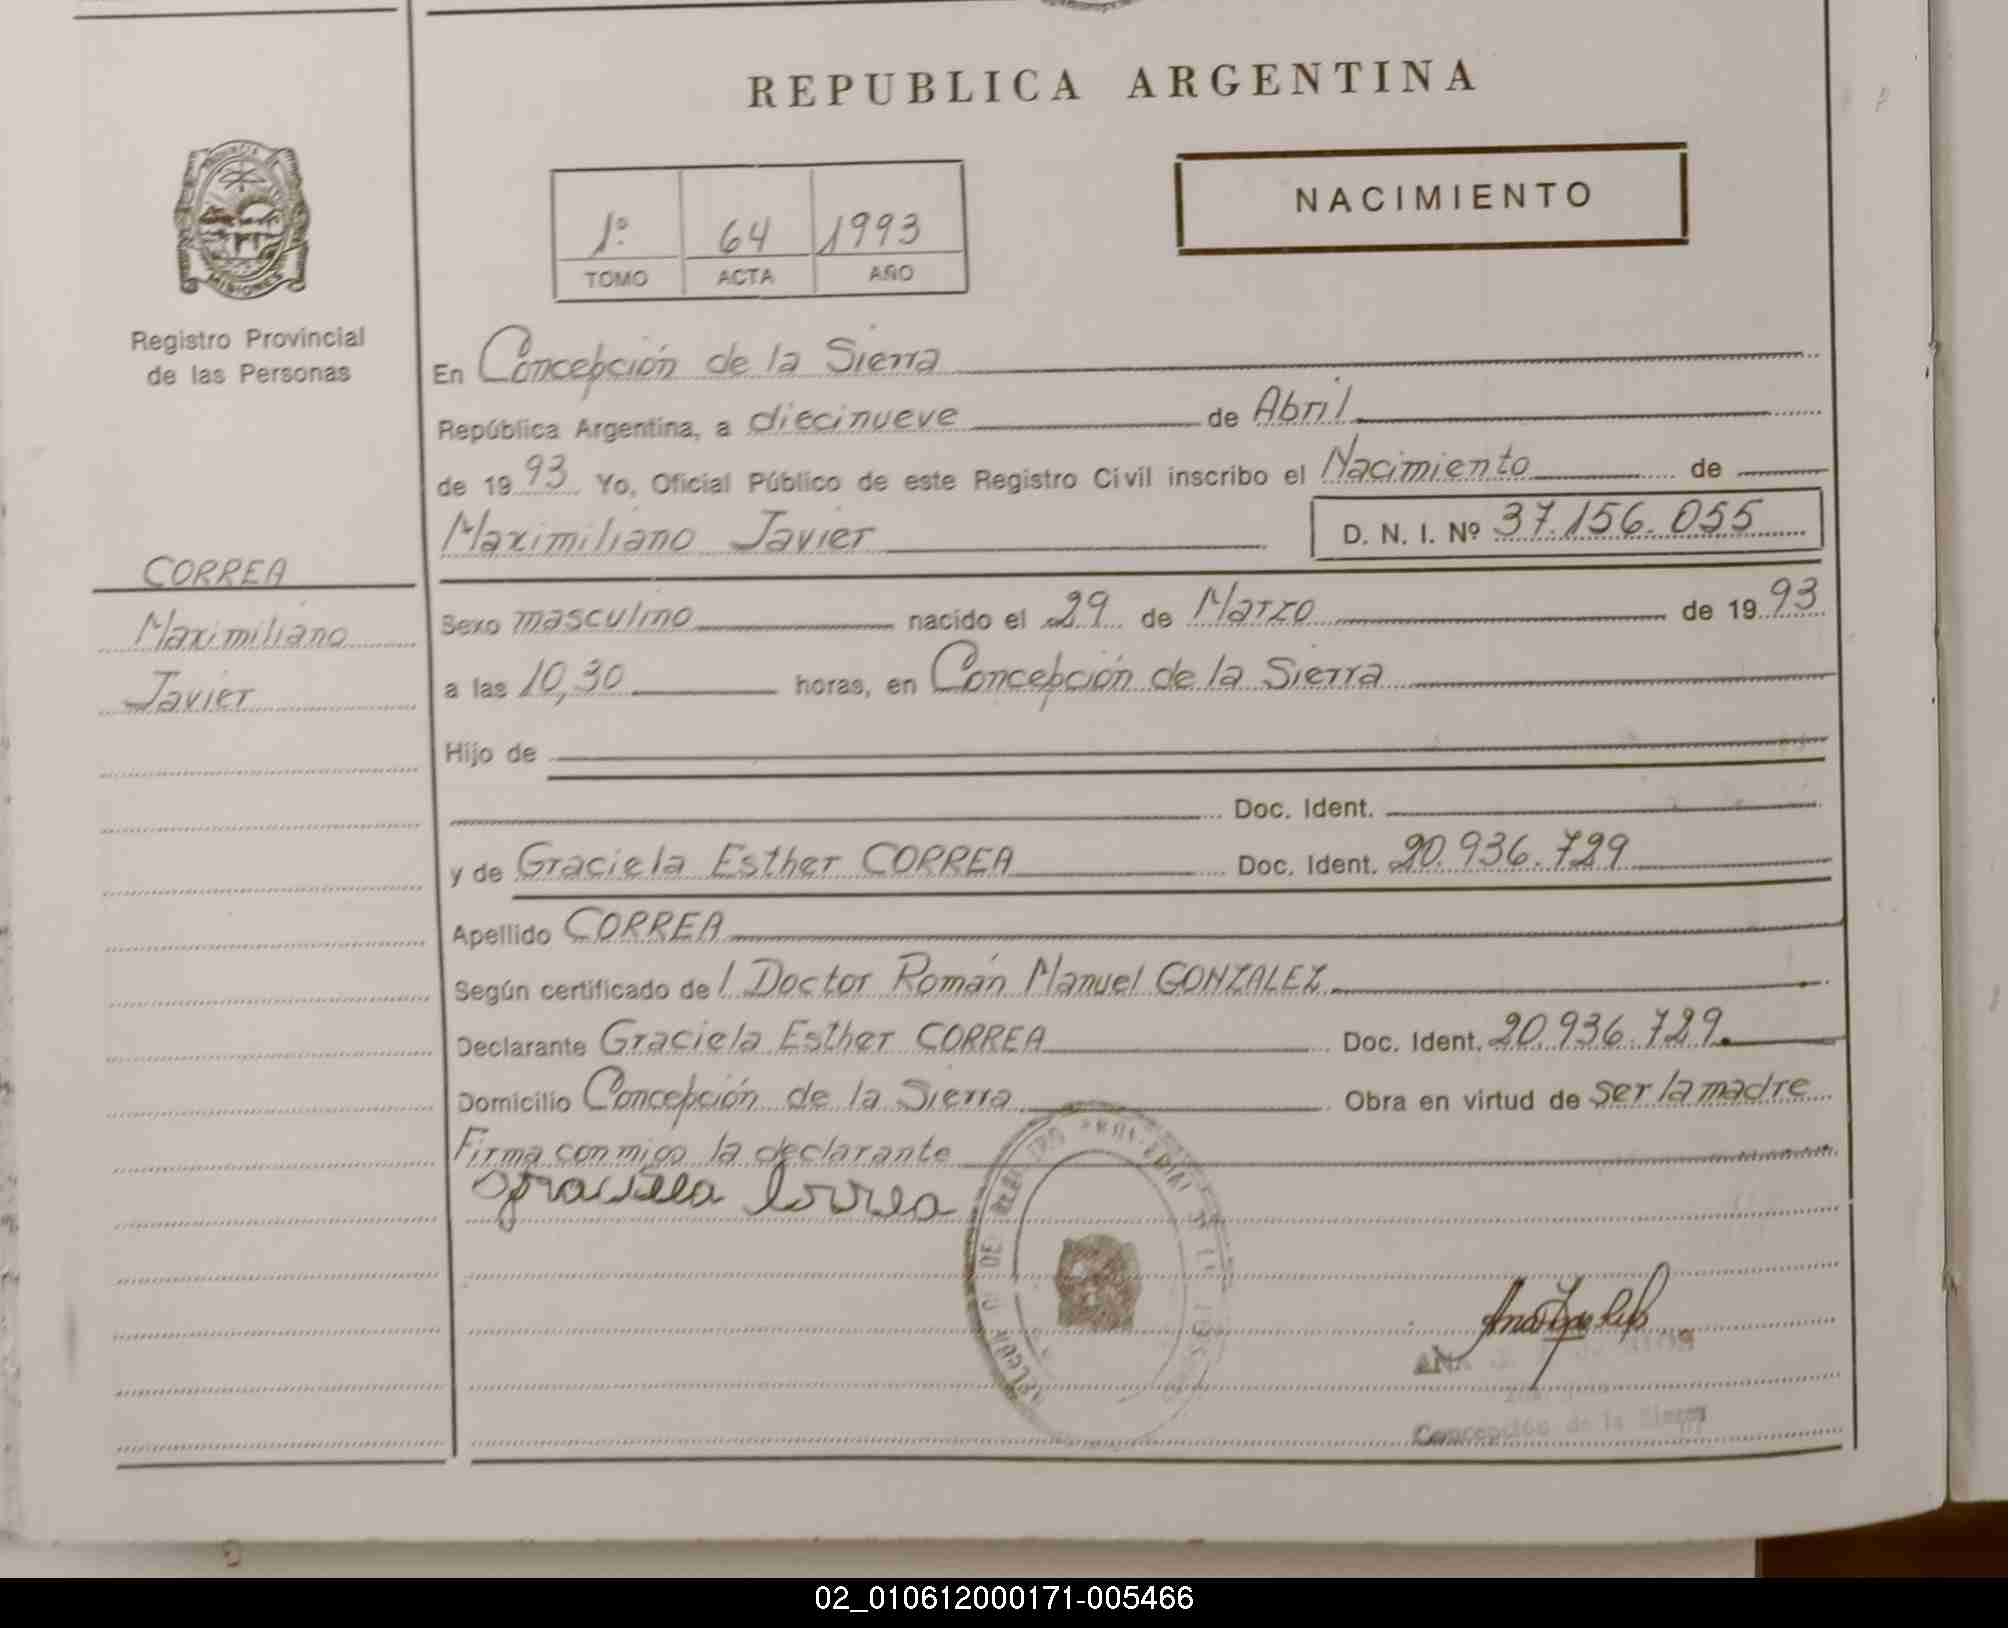 REPUBLICA ARGENTINA
NACIMIENTO
1º 64 1993
TOMO ACTA AÑO
PROVINCIA
MISIONES
Registro Provincial
de las Personas
CORREA
Maximiliano
Javier
En Concepción de la Sierra
República Argentina, a diecinueve de Abril
de 1993 Yo, Oficial Público de este Registro Civil inscribo el Nacimiento de
Maximiliano Javier D. N. I. Nº 37.156.055
Sexo masculino nacido el 29 de Marzo de 1993
a las 10,30 horas, en Concepción de la Sierra
Hijo de
Doc. Ident.
y de Graciela Esther CORREA Doc. Ident. 20.936.729
Apellido CORREA
Según certificado del Doctor Román Manuel GONZALEZ
Declarante Graciela Esther CORREA Doc. Ident. 20.936.729
Domicilio Concepción de la Sierra Obra en virtud de ser la madre
Firma conmigo la declarante
Graciela Correa
ANA
Concepción de la Sierra
02_010612000171-005466